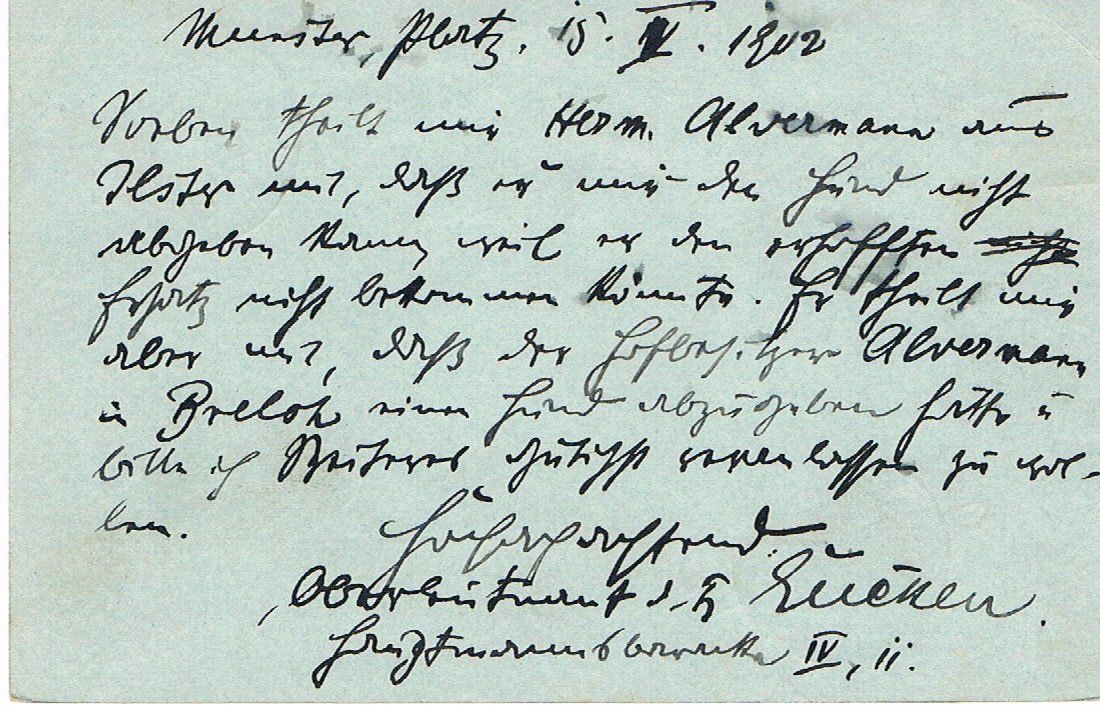 Munster, Platz. 15. IV. 1902
Soeben theilt mir Herm. Alvermann aus
Ilster mit, daß er mir den Hund nicht
abgeben kann, weil er den erhofften
Ersatz nicht bekommen könnte. Er theilt mir
aber mit, daß der Hofbesitzer Alvermann
in Breloh einen Hund abzugeben hätte u
bitte ich Weiteres gütigst veranlassen zu wol-
len.
Hochachtend
Oberleutnant d.
Hauptmannsbaracke IV, ii.